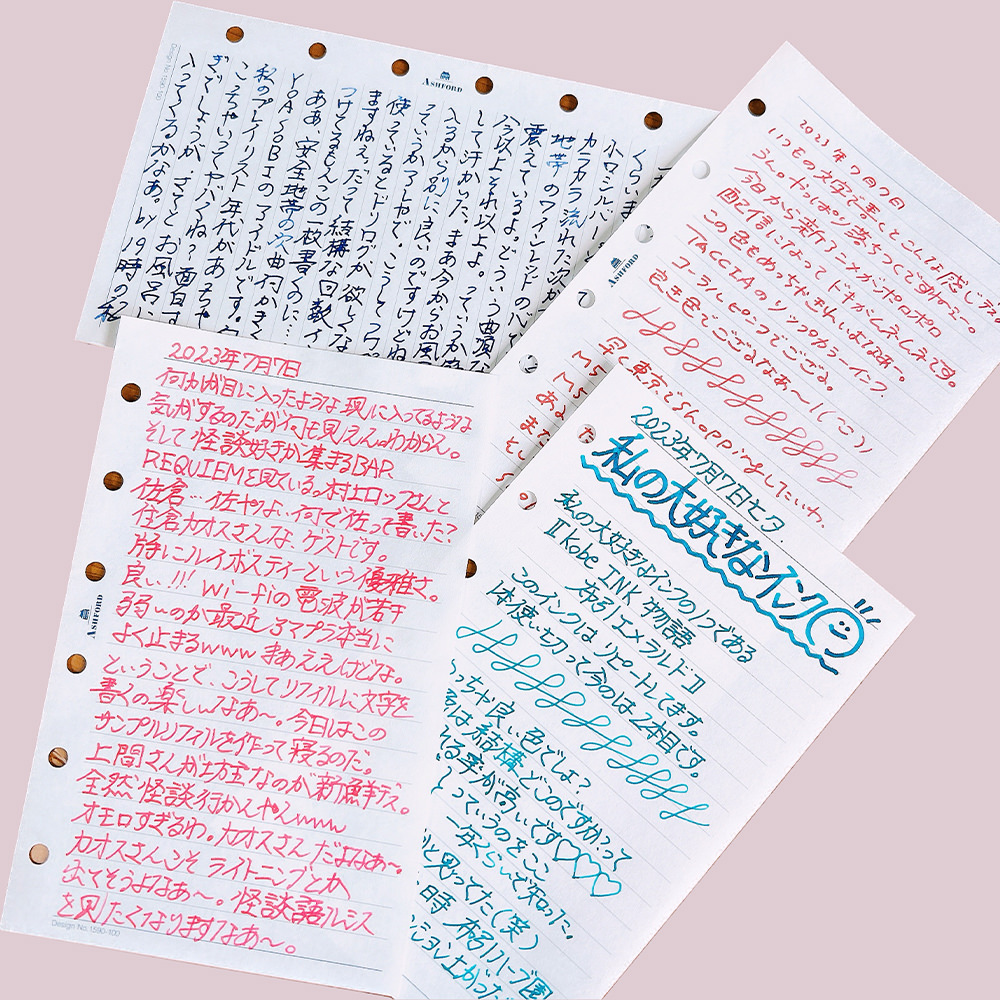 Design No. 1590-100
ASHFORD
くらい
小口シルバー
カラカラ流れた次が
地帯のワインレッドの心で
震えているよ。どういう曲順な
今以上それ以上よ。っていうか
して汗かいた。まあ今からお風
入るから別に良いのですけどね
っていうかアレやで、こうして
使えているとドリログが欲しくな
ますねぇ。だって結構な回数イ
つけてるもんこの一枚書くのに…
ああ、安全地帯の次の曲何かきく
YOASOBIのアイドルです。
私のプレイリスト年代が
こっちゃいってヤバくね?面白す
ぎでしょうが。さてとお風呂に
入ってくるかなあ。by 19時の私
2023年7月7日
いつもの文字で書くとこんな感じ
うん。やっぱり落ちつくですわー。
今日から新アニメがポロポロ
配信になってドキがムネムネです。
この色もめっちゃきれいよなあ。
TACCIAのリップカラーインク
コーラルピンクでござる。
良き色でござるなあ〜!
早く東京でShoppingしたいわ。
ASHFORD
M5
M5
ある
また
と
5
の
2023年7月7日
何かが目に入ったような現に入ってるような
気がするのだが何も見えん。わからん。
そして怪談好きが集まるBAR
REQUIEMを見ている。村上ロックさんと
佐倉…佐やりよ、何で佐って書いた?
住倉カオスさんな、ゲストです。
特にルイボスティーという優雅さ。
良い!!! Wi-fiの電波が若干
弱いのか最近シマプラ本当に
よく止まるwww まあええけどな。
ということで、こうしてリフィルに文字を
書くの楽しいなあ〜。今日はこの
サンプルリフィルを作って寝るのだ。
上間さんが坊主なのが新鮮デス。
全然怪談行かんやんwww
オモロすぎるわ。カオスさんだよなあ〜
カオスさんこそライトニングとか
出てそうよなあ〜。怪談語ルシス
を見たくなりますなあ〜。
ASHFORD
Design No. 1590-100
2023年7月7日ヒタ
私の大好きなインク
私の大好きなインクの1つである
『kobe INK物語
布引エメラルド』
このインクはリピートしてます。
1本使い切って今のは2本目です。
っちゃ良い色でしょ?
結構どこのですかって
れる率が高いです♡♡♡
っていうのをここ
一年くらいで知った。
と思ってた(笑)
日時 布引ハーブ園
ション上がった